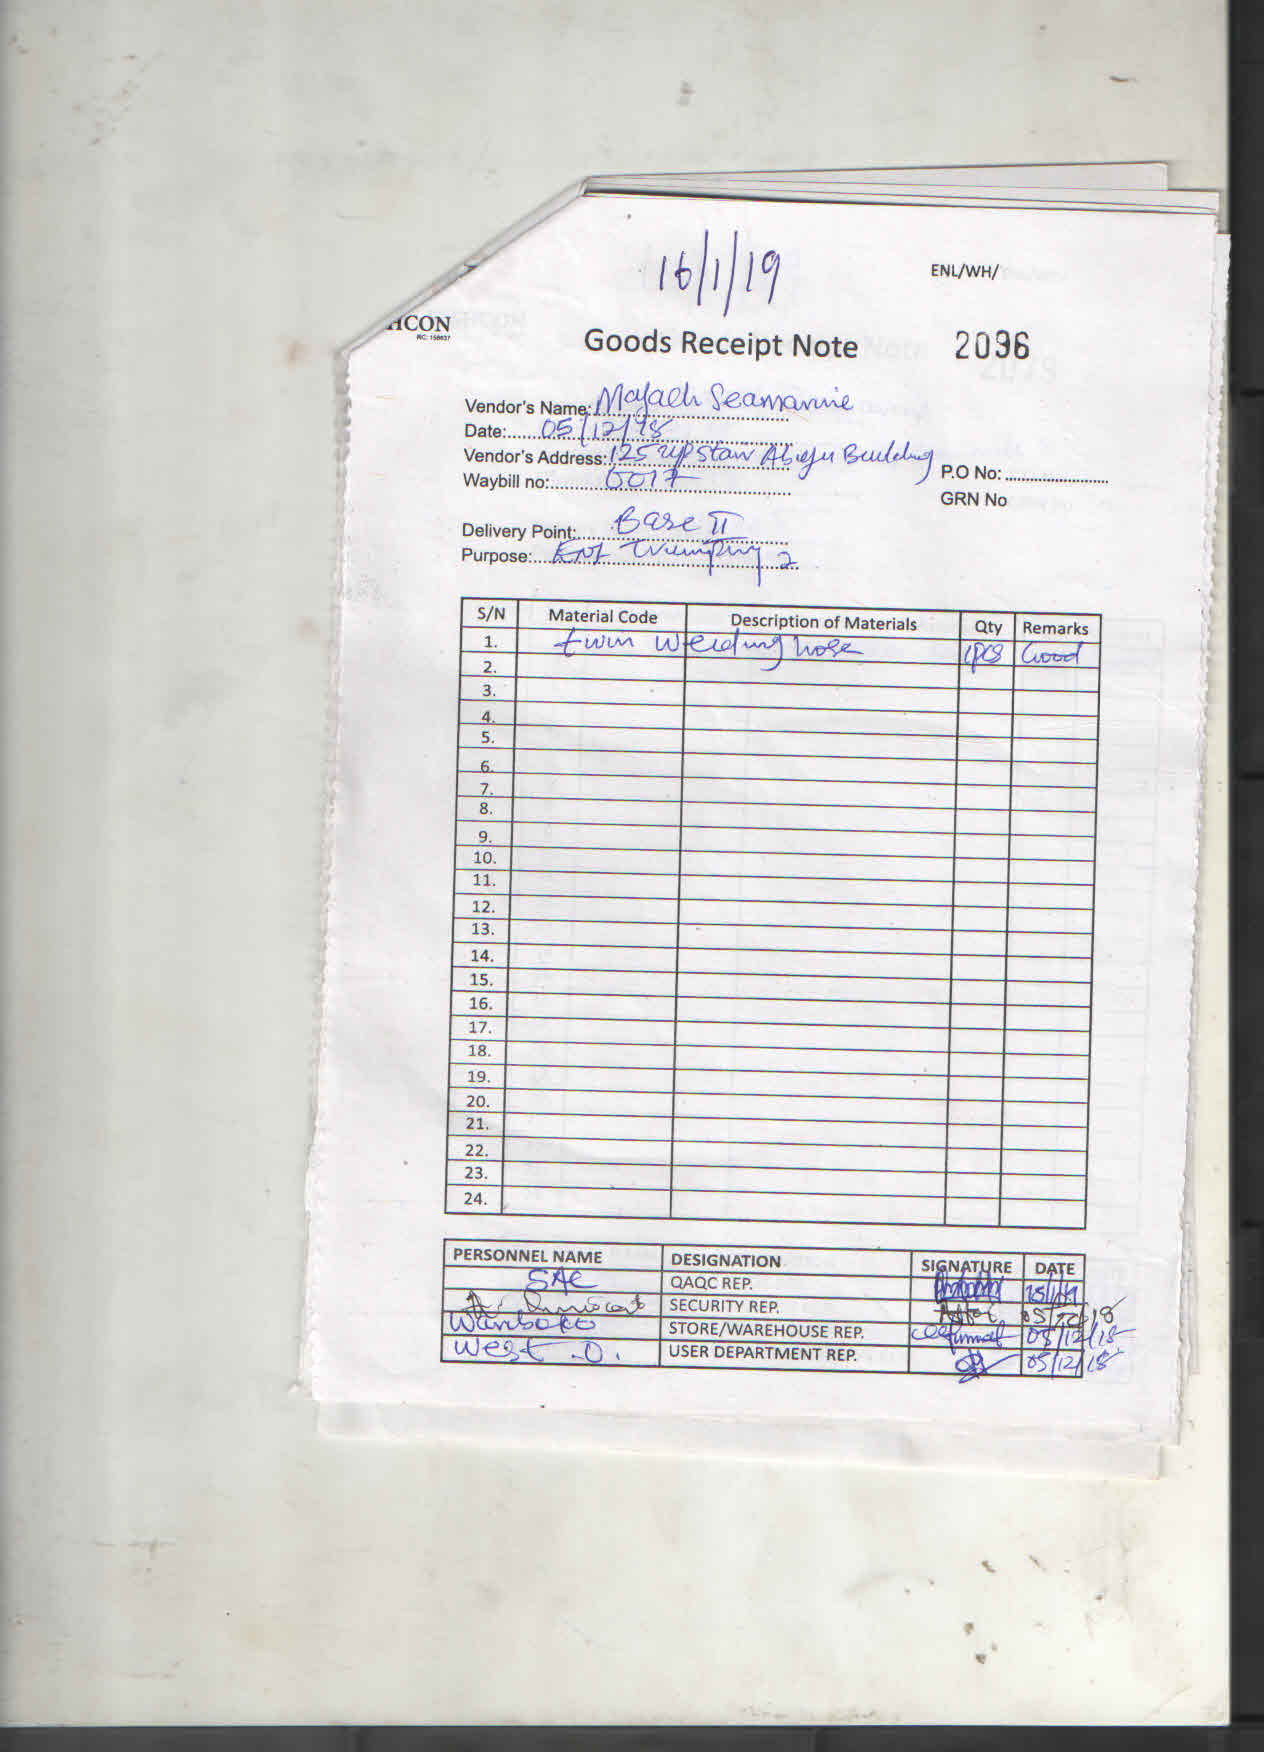 16/1/19
ENL/WH/
HCON
RC: 158637
Goods Receipt Note 2096
Vendor's Name: Majach Seamarine
Date: 05/12/18
Vendor's Address: 125 upstair Building
P.O No:
Waybill no: 0017
GRN No
Delivery Point: Base II
Purpose: 2
S/N Material Code Description of Materials Qty Remarks
1. twin welding hose 1pcs Good
2.
3.
4.
5.
6.
7.
8.
9.
10.
11.
12.
13.
14.
15.
16.
17.
18.
19.
20.
21.
22.
23.
24.
PERSONNEL NAME DESIGNATION SIGNATURE DATE
QAQC REP.
SECURITY REP. 05/12/18
Wariboko STORE/WAREHOUSE REP. 05/12/18
West .O. USER DEPARTMENT REP. 05/12/18